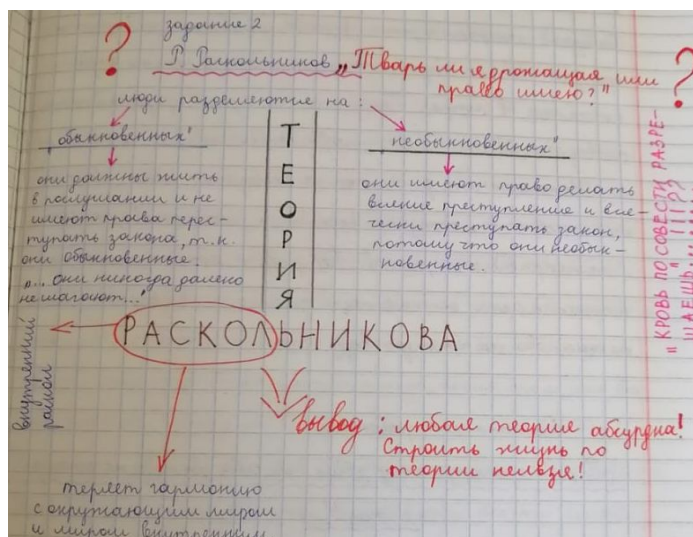 задание 2
Р. Раскольников „Тварь ли я дрожащая или
право имею?"
люди разделяются на:
„обыкновенных"
они должны жить
в послушании и не
имеют права перес-
тупать закона, т.к.
они обыкновенные.
„... они никогда далеко
не шагают..."
ТЕОРИЯ
необыкновенных"
они имеют право делать
всякие преступление и вся-
чески преступать закон,
потому что они необык-
новенные.
РАСКОЛЬНИКОВА
внутренний
раскол
Вывод: любая теория абсурдна!
Строить жизнь по
теории нельзя!
теряет гармонию
с окружающим миром
и миром внутренним
"КРОВЬ ПО СОВЕСТИ РАЗРЕ-
ШАЕШЬ...
?
?